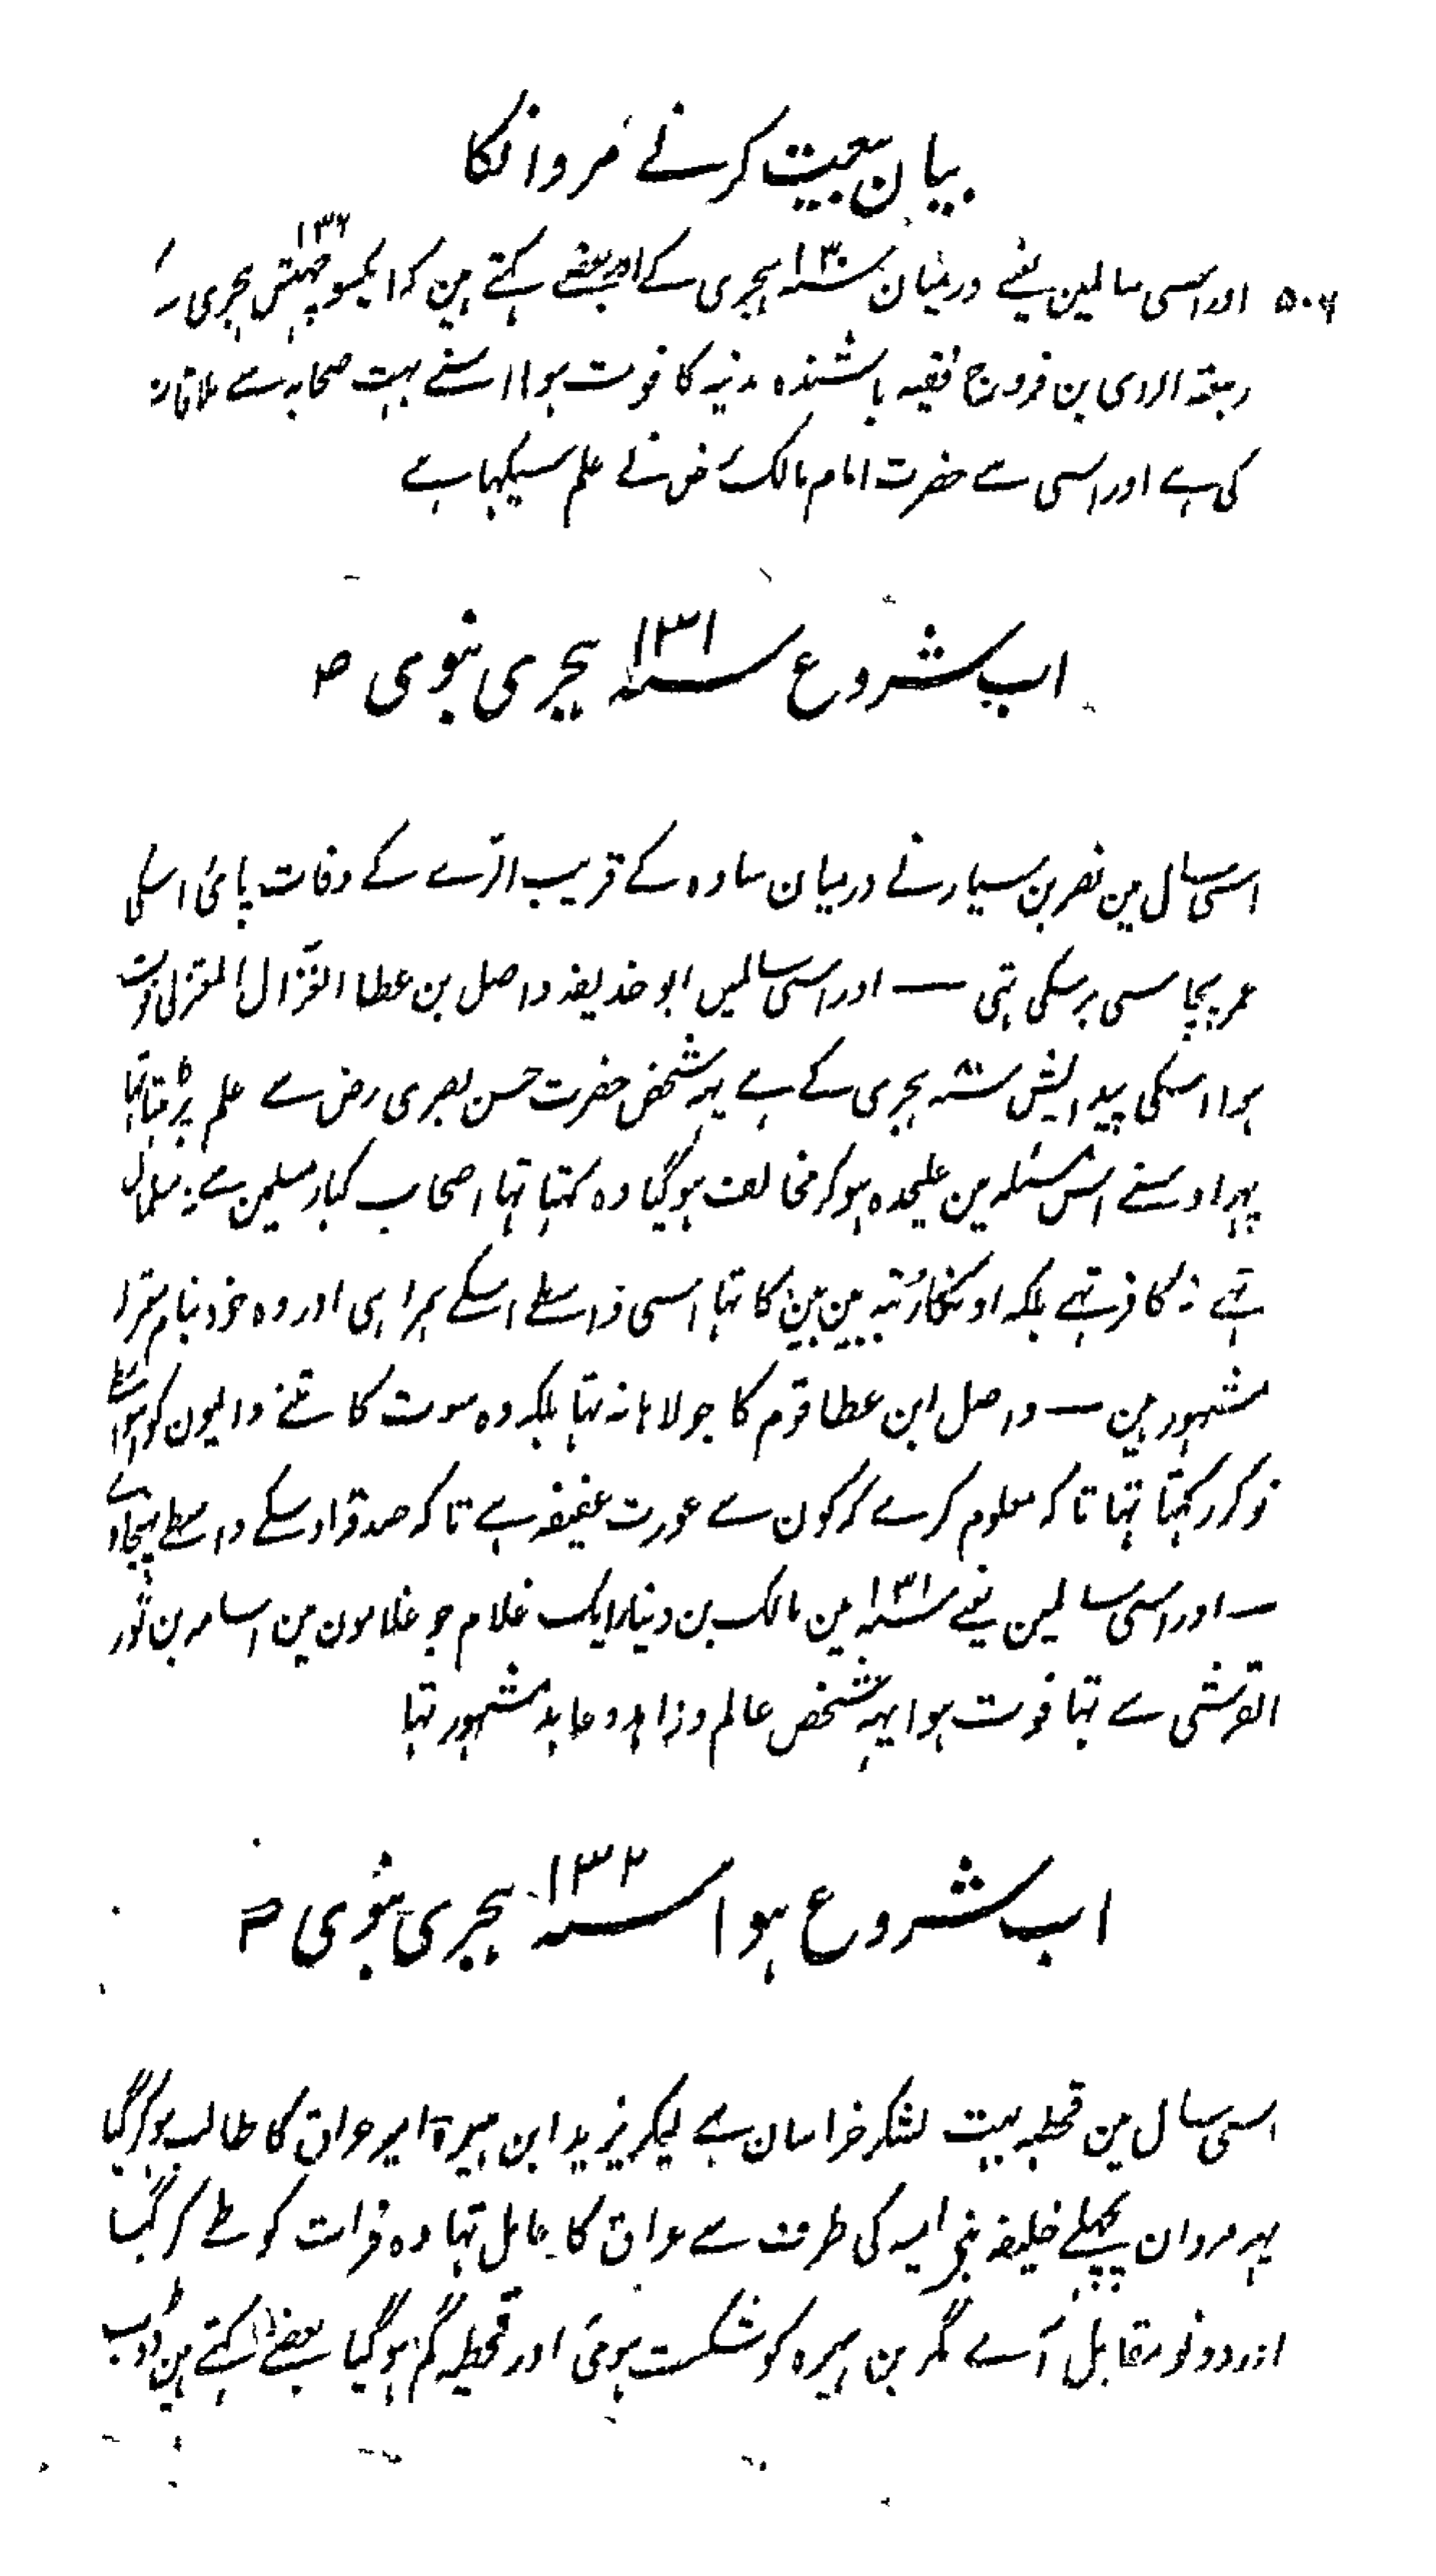 بیان بیعت کرنے مروانکا
۵۰۶ اور اسی سالمین یعنے درمیان سنہ ۱۳۰ ہجری کے اور بعضے کہتے ہین کہ ایکسو چھتیس ۱۳۶ ہجری
ربیعۃ الرای بن فروخ فقیہ باشندہ مدینہ کا فوت ہوا اسنے بہت صحابہ سے ملاقات
کی ہے اور اسی سے حضرت امام مالک رض نے علم سیکہا ہے
اب شروع سنہ ۱۳۱ ہجری نبوی ص
اسی سال مین نصر بن سیار نے درمیان ساوہ کے قریب الرے کے وفات پائی اسکی
عمر پچاسی برسکی تہی — اور اسی سالمیں ابو حذیفہ واصل بن عطا الغزال المعتزلی فوت
ہوا اسکی پیدایش سنہ ۸۰ ہجری کے ہے یہہ شخص حضرت حسن بصری رض سے علم پڑہتا تہا
پہر اوسنے اس مسئلہ مین علیحدہ ہو کر مخالف ہو گیا وہ کہتا تہا اصحاب کبار مسلمین سے نہ مسلمان
تہے نہ کافر تہے بلکہ اونکا رتبہ بین بین کا تہا اسی واسطے اسکے ہمراہی اور وہ خود بنام معتزلہ
مشہور ہین — واصل ابن عطا قوم کا جولاہا نہ تہا بلکہ وہ سوت کاتنے والیون کو اسواسطے
نوکر رکہتا تہا تاکہ معلوم کرے کہ کون سے عورت عفیفہ ہے تاکہ صدقہ اوسکے واسطے بہیجاوے
— اور اسی سالمین یعنے سنہ ۱۳۱ مین مالک بن دینار ایک غلام جو غلامون مین اسامہ بن ثور
القرشی سے تہا فوت ہوا یہہ شخص عالم و زاہد و عابد مشہور تہا
اب شروع ہوا سنہ ۱۳۲ ہجری نبوی ص
اسی سال مین قحطبہ بہت لشکر خراسان سے لیکر یزید ابن ہبیرۃ امیر عراق کا طالب ہو کر گیا
یہہ مروان پچہلے خلیفہ بنی امیہ کی طرف سے عراق کا عامل تہا وہ فرات کو طے کر گیا
اور دونو مقابل آے مگر بن ہبیرہ کو شکست ہوئی اور قحطبہ گم ہو گیا بعضے کہتے ہین ڈوب